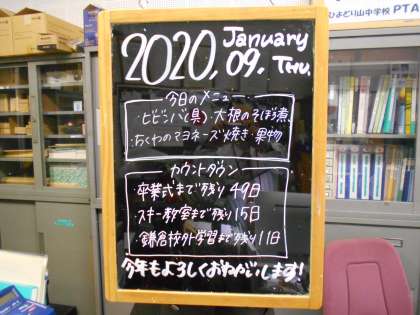 ひよどり山中学校 PTA
2020. January
09. THU.
今日のメニュー
・ビビンバ(具)・大根のそぼろ煮
・ちくわのマヨネーズ焼き・果物
カウントダウン
・卒業式まで残り49日
・スキー教室まで残り15日
・鎌倉校外学習まで残り11日
今年もよろしくおねがいします!